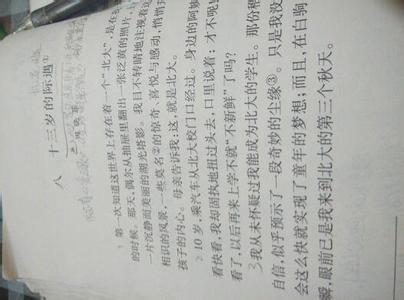 八 十三岁的际遇①
1 第一次知道这世界上存在着一个“北大”,是在
的时候。那天,偶尔从抽屉里翻出一张泛黄的照片,
一片沉静而美丽的湖光塔影。我目不转睛地注视着这
相识的风景,一些莫名②的惊奇、喜悦与感动,悄悄
孩子的内心。母亲告诉我:这,就是北大。
2 10岁,乘汽车从北大校门口经过。身边的阿姨
看快看,我却固执地扭过头去,口里说着:才不呢
看了,以后再来上学不就“不新鲜”了吗?
3 我从未怀疑过我能成为北大的学生。那份稚
自信,似乎预示了一段奇妙的尘缘③。只是我没
会这么快就实现了童年的梦想;而且,在白驹
瞬,眼前已是我来到北大的第三个秋天。